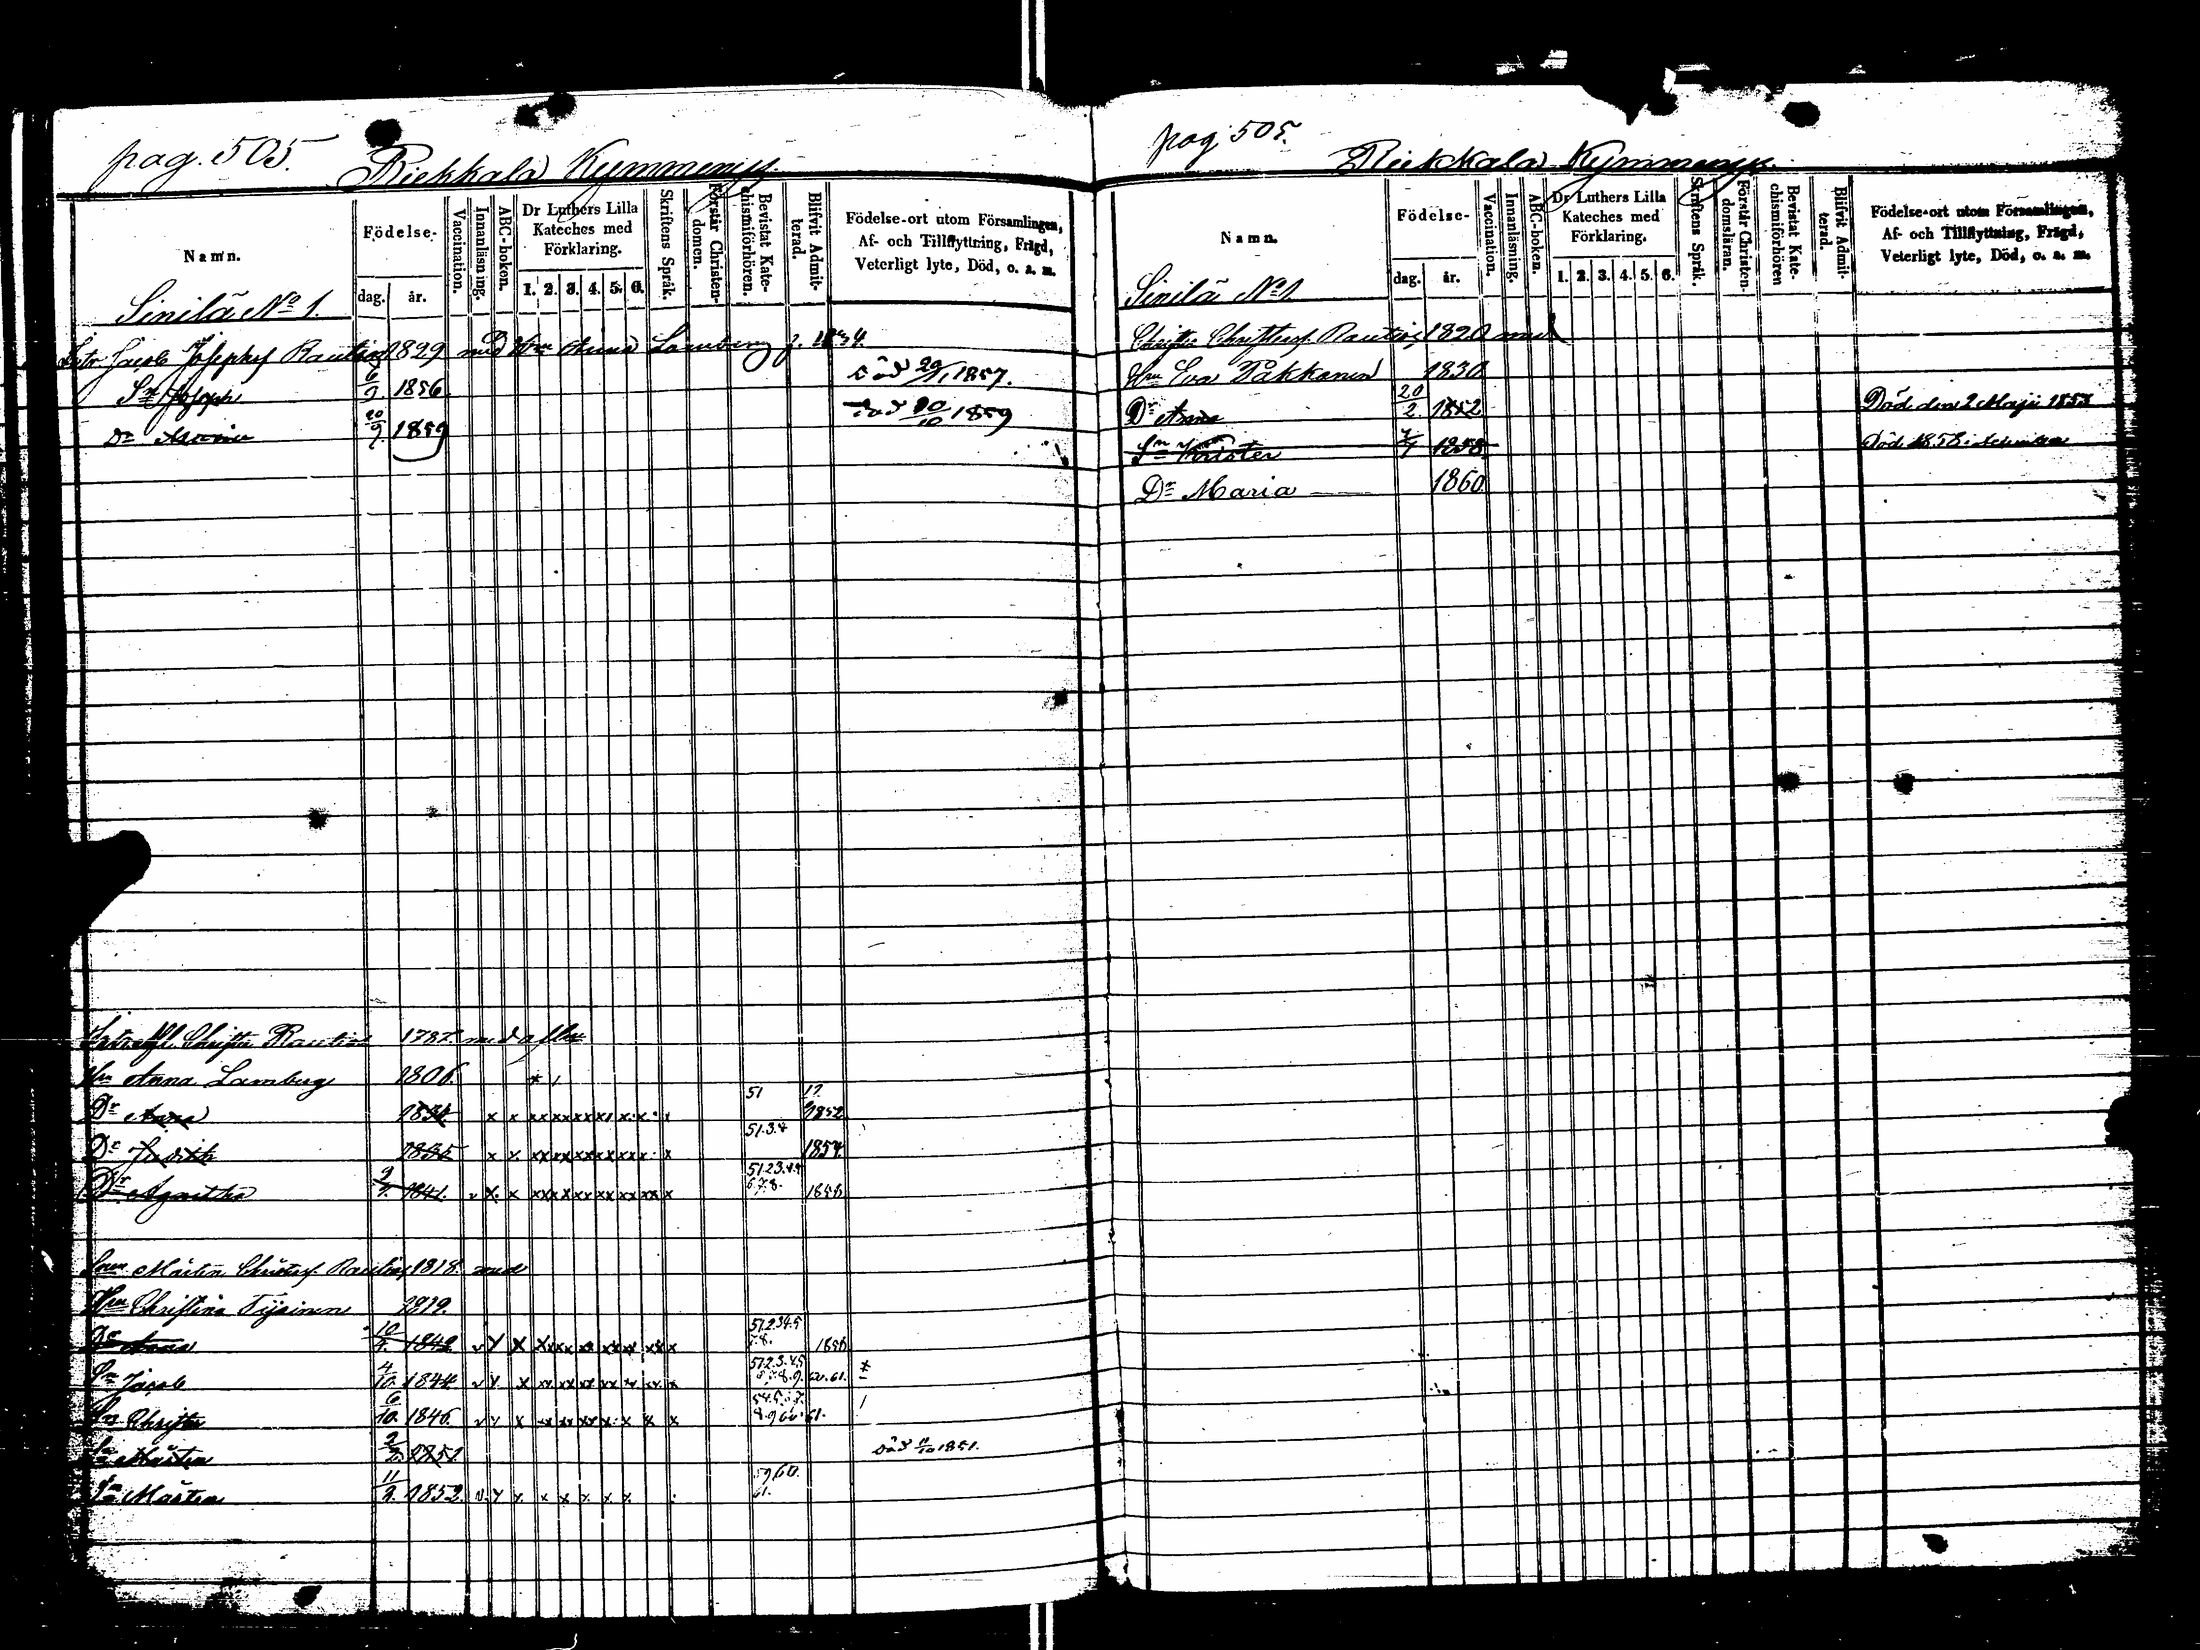 pag. 505.
Riekkala Kymmenys.
Namn.
Födelse-
dag. år.
Vaccination.
Innanläsning.
ABC-boken.
Dr Luthers Lilla Kateches med Förklaring.
1. 2. 3. 4. 5. 6.
Skriftens Språk.
Förstår Christendomen.
Bevistat Katechismiförhören.
Blifvit Admitterad.
Födelse-ort utom Församlingen,
Af- och Tillflyttning, Frägd,
Veterligt lyte, Död, o. a. m.
Sinilä No 1.
Jacob Josephs Rautio 1829 med Hu Anna Lamberg f. 1834.
Sn Joseph 6/9. 1856 Död 29/1 1857.
Dr 20/9. 1859 Död 20/10 1859
Christer Rautio 1787. med
Hu Anna Lamberg 1806.
Dr Anna 1834 51 17. 1852
Dr Judith 1835 51.3.4 1854
Dr Agneta 9/ 1841. 51.2.3.4. 6.7.8. 1858
Mårten Christers. Rautio 1818. med
Hu Christina Tijainen 1819.
Dr Anna 10/ 1842 51.2.3.4.5 7.8. 1858
Sn Jacob 4/10. 1844 51.2.3.4.5 6.7.8.9. 60.61.
Sn Christer 6/10. 1846. 8.9.60.61.
Sn Mårten 2/2. 1851 Död /10 1851.
Sn Mårten 11/9. 1852. 59.60. 61.
pag 505.
Riekkala Kymmenys.
Namn.
Födelse-
dag. år.
Vaccination.
Innanläsning.
ABC-boken.
Dr Luthers Lilla
Kateches med
Förklaring.
1. 2. 3. 4. 5. 6.
Skriftens Språk.
Förstår Christendomsläran.
Bevistat Katechismiförhören
Blifvit Admitterad.
Födelse-ort utom Församlingen,
Af- och Tillflyttning, Frägd,
Veterligt lyte, Död, o. a. m.
Sinilä No 1.
Christer Christers. Rautio 1820 med
Hu Eva Pakkanen 1830
Dr Anna 20/2 1852 Död den 2 Maji 1853
Sn Krister 7/1 1858 Död 1858 i
Dr Maria 1860